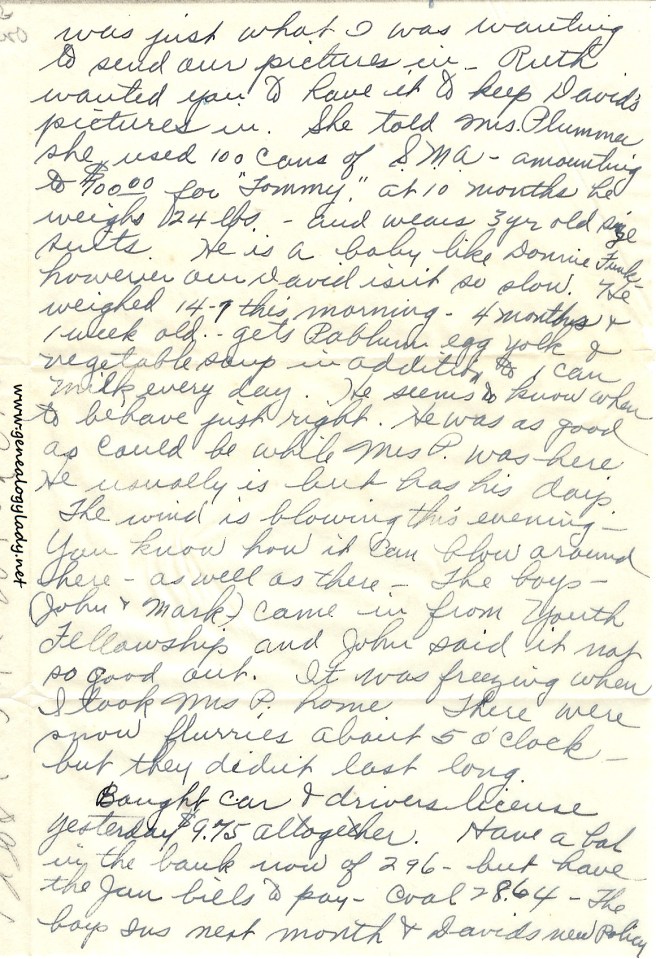 was just what I was wanting
to send our pictures in - Ruth
wanted you to have it to keep David's
pictures in. She told Mrs. Plummer
she used 100 cans of S.M.A - amounting
to $100.00 for "Tommy." at 10 months he
weighs 24 lbs. - and wears 3 yr old size
suits. He is a baby like Donnie Funk
however our David isn't so slow. He
weighed 14-9 this morning - 4 months &
1 week old. - gets Pablum egg yolk &
vegetable soup in addition to 1 can
milk every day. He seems to know when
to behave just right. He was as good
as could be while Mrs P. was here
He usually is but has his days.
The wind is blowing this evening -
You know how it can blow around
here - as well as there - The boys -
(John & Mark) came in from Youth
Fellowship and John said it not
so good out. It was freezing when
I took Mrs P. home There were
snow flurries about 5 o'clock -
but they didn't last long.
Bought car & drivers license
yesterday $9.75 altogether. Have a bal
in the bank now of 296 - but have
the Jan bills to pay - Coal 28.64 - The
boys Ins next month & Davids new Policy
www.genealogylady.net